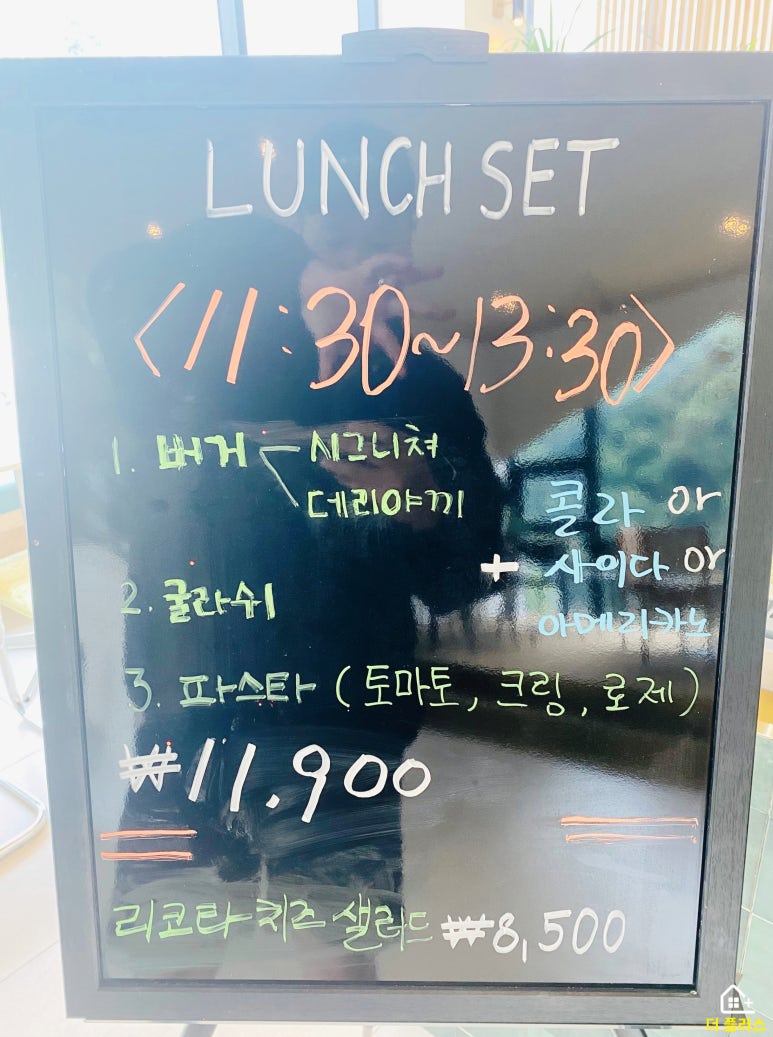 LUNCH SET
<11:30~13:30>
1. 버거 시그니쳐
데리야끼
콜라 or
2. 굴라쉬 + 사이다 or
아메리카노
3. 파스타 (토마토, 크림, 로제)
₩11,900
리코타 치즈 샐러드 ₩8,500
더 플러스